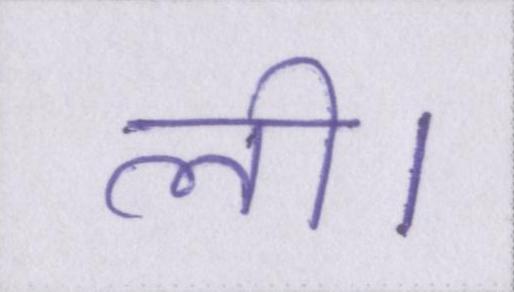 ली।